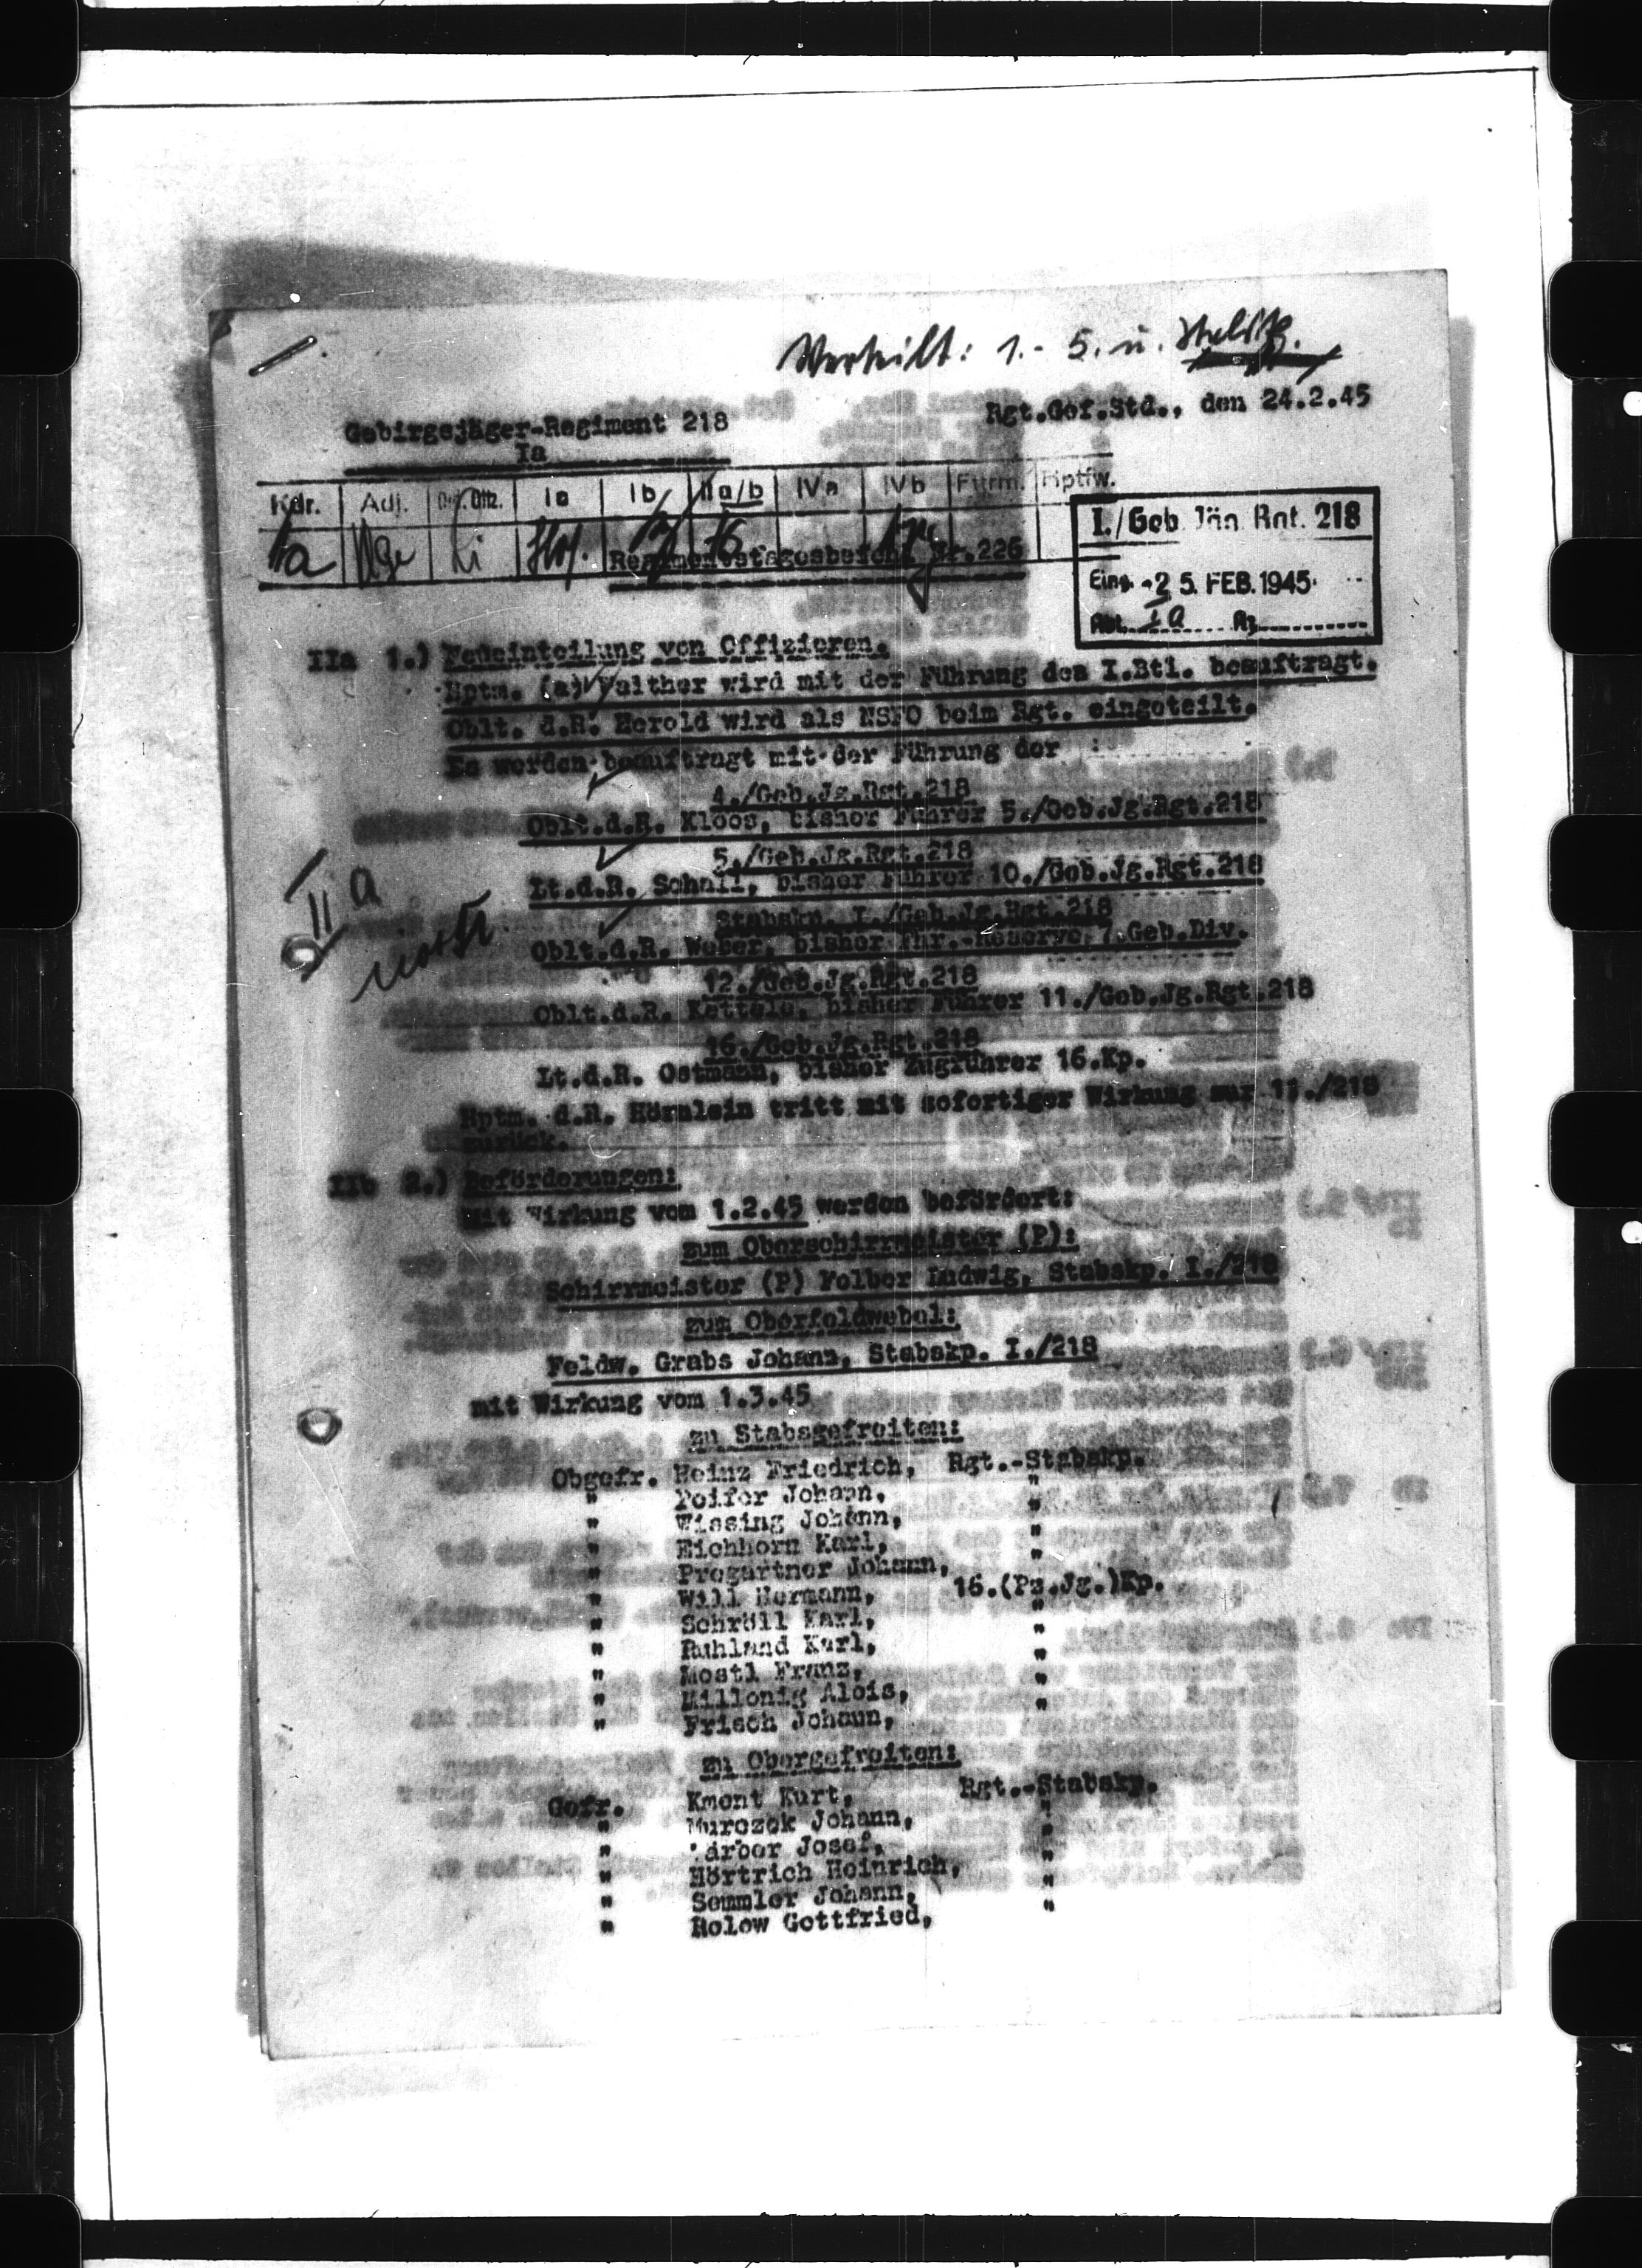 Verteilt: 1.- 5. u.
Gebirgsjäger-Regiment 218
Ia
Rgt.Gef.Std., den 24.2.45
Kdr. Adj. Ord. Offz. Ia Ib IIa/b IVa IVb Fürm. Hptfw.
I./Geb. Jäg. Rgt. 218
Eing. 25. FEB. 1945
Abt. Ia Az.
Regimentstagesbefehl Nr.226
IIa 1.) Neueinteilung von Offizieren.
Hptm. (a) Walther wird mit der Führung des I.Btl. beauftragt.
Oblt. d.R. Herold wird als NSFO beim Rgt. eingeteilt.
Es werden beauftragt mit der Führung der
4./Geb.Jg.Rgt.218
Oblt.d.R. Kloos, bisher Führer 5./Geb.Jg.Rgt.218
5./Geb.Jg.Rgt.218
Lt.d.R. Schnell, bisher Führer 10./Geb.Jg.Rgt.218
Stabskp. I./Geb.Jg.Rgt.218
Oblt.d.R. Weber, bisher Fhr.-Reserve 7.Geb.Div.
12./Geb.Jg.Rgt.218
Oblt.d.R. Kettele, bisher Führer 11./Geb.Jg.Rgt.218
16./Geb.Jg.Rgt.218
Lt.d.R. Ostmann, bisher Zugführer 16.Kp.
Hptm. d.R. Hörnlein tritt mit sofortiger Wirkung zur 11./218
zurück.
IIa
IIb 2.) Beförderungen:
Mit Wirkung vom 1.2.45 werden befördert:
zum Oberschirrmeister (P):
Schirrmeister (P) Folber Ludwig, Stabskp. I./218
zum Oberfeldwebel:
Feldw. Grabs Johann, Stabskp. I./218
mit Wirkung vom 1.3.45
zu Stabsgefreiten:
Obgefr. Heinz Friedrich, Rgt.-Stabskp.
" Poifer Johann, "
" Wissing Johann, "
" Eichhorn Karl, "
" Pregartner Johann, "
" Will Hermann, 16.(Pz.Jg.)Kp.
" Schröll Karl, "
" Ruhland Karl, "
" Mostl Franz, "
" Millonig Alois, "
" Frisch Johann, "
zu Obergefreiten:
Gefr. Kmont Kurt, Rgt.-Stabskp.
" Murczek Johann, "
" Josef, "
" Hörtrich Heinrich, "
" Semmler Johann, "
" Rolow Gottfried, "